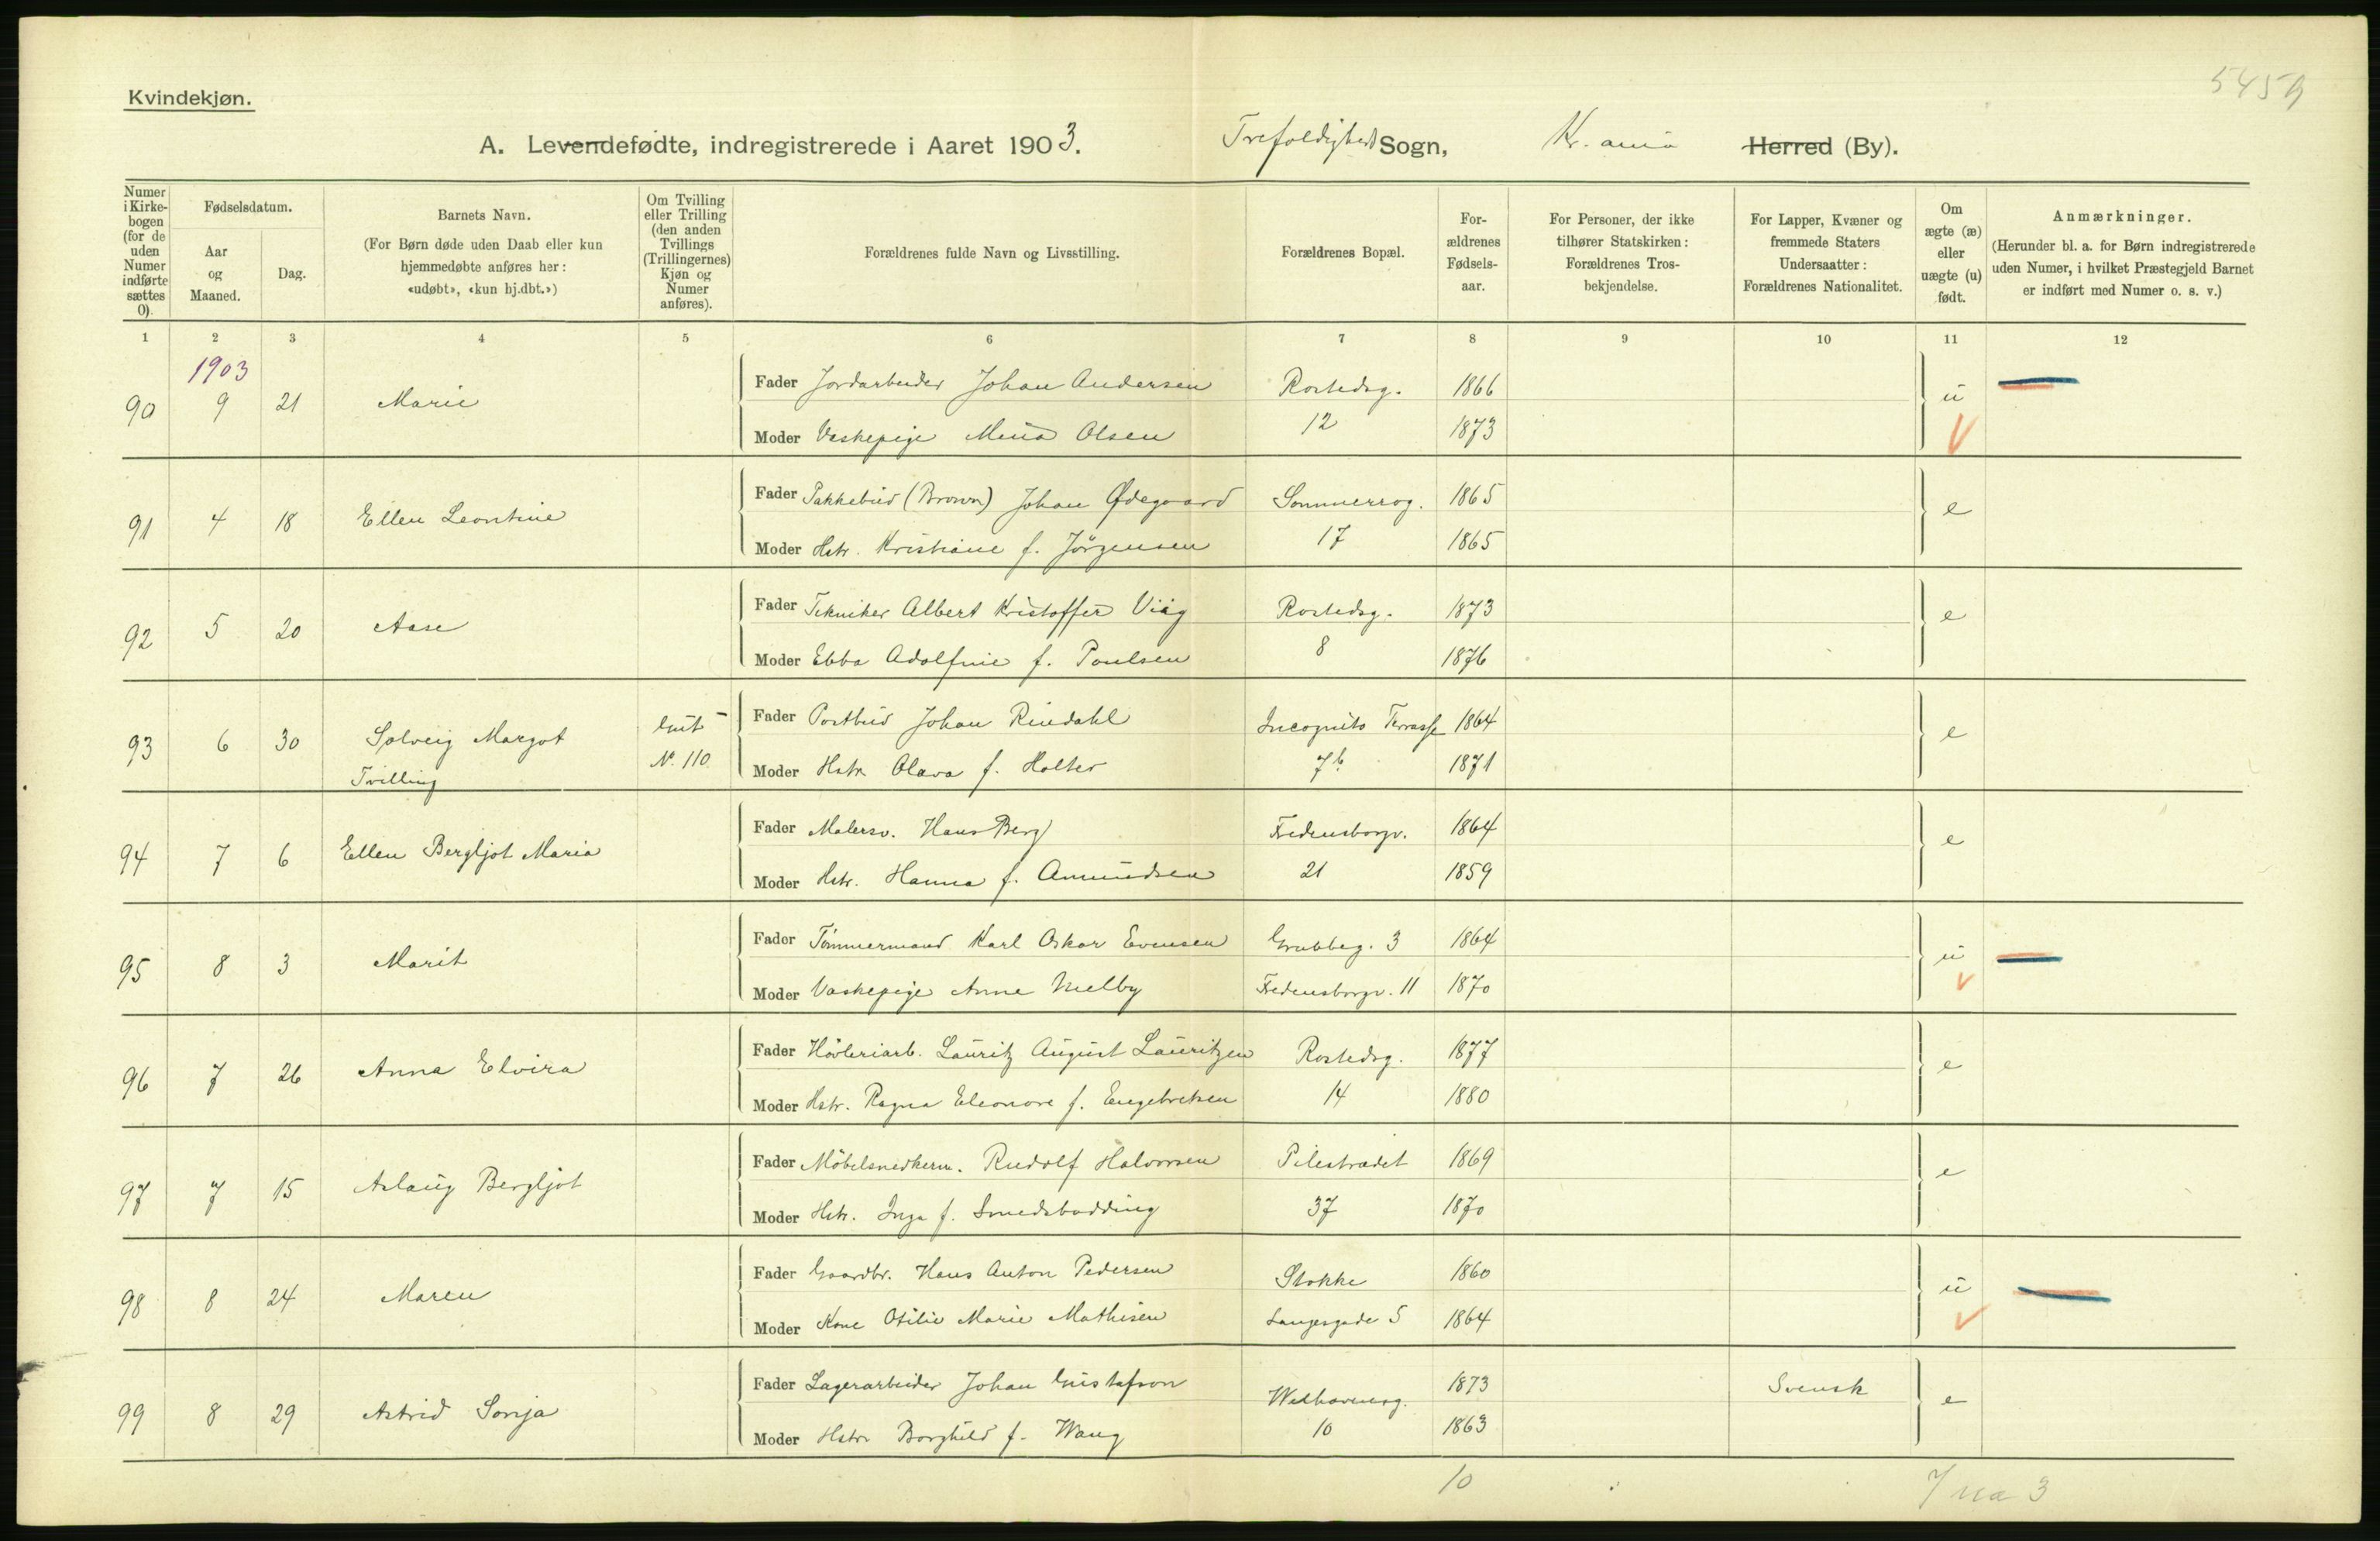 5459
Kvindekjøn.
A. Levendefødte, indregistrerede i Aaret 1903. Trefoldighed Sogn, Kr.ania Herred (By).
Numer i Kirkebogen (for de uden Numer indførte sættes 0).
Fødselsdatum.
Aar og Maaned.
Dag.
Barnets Navn.
(For Børn døde uden Daab eller kun hjemmedøbte anføres her: «udøbt», «kun hj.dbt.»)
Om Tvilling eller Trilling (den anden Tvillings (Trillingernes) Kjøn og Numer anføres).
Forældrenes fulde Navn og Livsstilling.
Forældrenes Bopæl.
Forældrenes Fødselsaar.
For Personer, der ikke tilhører Statskirken: Forældrenes Trosbekjendelse.
For Lapper, Kvæner og fremmede Staters Undersaatter: Forældrenes Nationalitet.
Om ægte (æ) eller uægte (u) født.
Anmærkninger.
(Herunder bl. a. for Børn indregistrerede uden Numer, i hvilket Præstegjeld Barnet er indført med Numer o. s. v.)
1 2 3 4 5 6 7 8 9 10 11 12
1903
90 9 21 Marie
Fader Jordarbeider Johan Andersen Rostedsg. 1866 u
Moder Vaskepige Mina Olsen 12 1873
91 4 18 Ellen Leontine
Fader Pakkebud (Brown) Johan Ødegaard Sommerrog. 1865 e
Moder Hstr. Kristiane f. Jörgensen 17 1865
92 5 20 Aase
Fader Tekniker Albert Kristoffer Viig Rostedsg. 1873 e
Moder Ebba Adolfine f. Poulsen 8 1876
93 6 30 Solveig Margot Tvilling
Gut N. 110
Fader Postbud Johan Rindahl Incognito Terrasse 1864 e
Moder Hstr. Olava f. Holter 7b 1871
94 7 6 Ellen Bergljot Maria
Fader Malersv. Hans Berg Fredensborgv. 1864 e
Moder Hstr. Hanna f. Amundsen 21 1859
95 8 3 Marit
Fader Tömmermand Karl Oskar Evensen Grubbeg. 3 1864 u
Moder Vaskepige Anne Melby Fredensborgv. 11 1870
96 7 26 Anna Elvira
Fader Hövleriarb. Lauritz August Lauritzen Rostedsg. 1877 e
Moder Hstr. Ragna Eleonore f. Engebretsen 14 1880
97 7 15 Aslaug Bergljot
Fader Möbelsnedkerm. Rudolf Halvorsen Pilestrædet 1869 e
Moder Hstr. Inga f. Smedsbødding 37 1870
98 8 24 Maren
Fader Gaardbr. Hans Anton Pedersen Stokke 1860 u
Moder Kone Otilie Marie Mathisen Langesgade 5 1864
99 8 29 Astrid Sonja
Fader Lagerarbeider Johan Gustafson Welhavensg. 1873 Svensk e
Moder Hstr. Borghild f. Wang 10 1863
10
7 ua 3